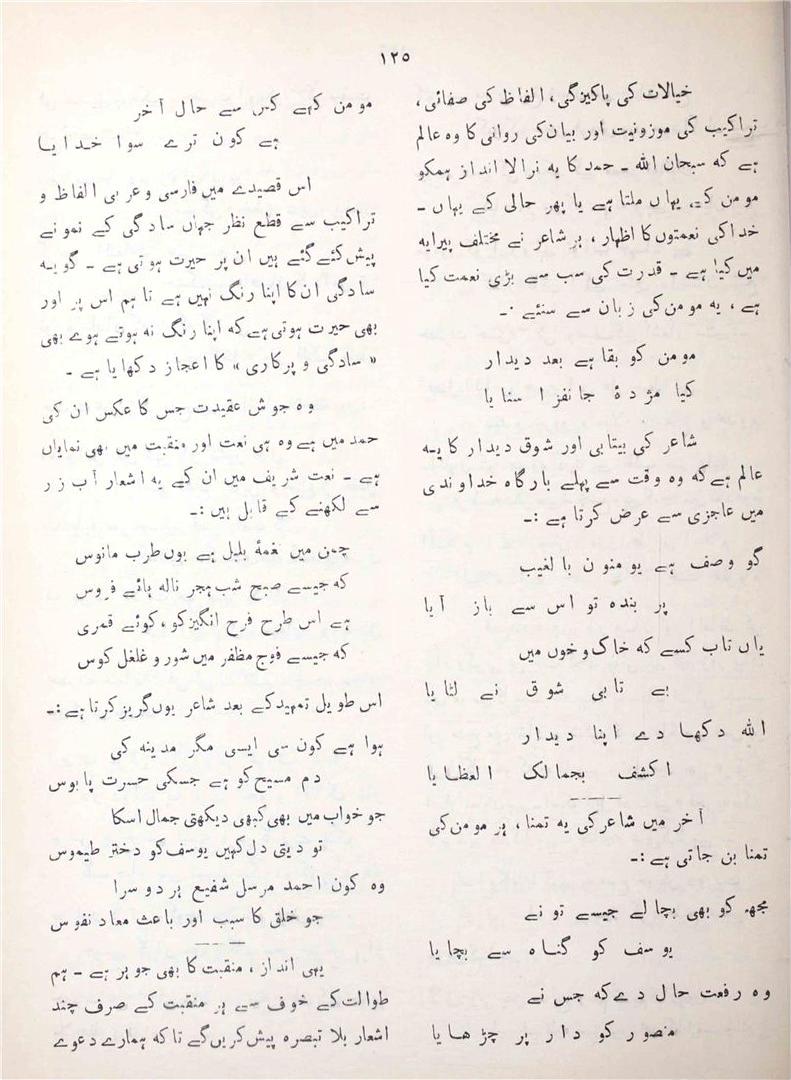 ۱۲۵
خیالات کی پاکیزگی، الفاظ کی صفائی،
تراکیب کی موزونیت اور بیان کی روانی کا وہ عالم
ہے کہ سبحان اللہ ۔ حمد کا یہ نرالا انداز ہمکو
مومن کے یہاں ملتا ہے یا پھر حالی کے یہاں ۔
خدا کی نعمتوں کا اظہار ، ہر شاعر نے مختلف پیرایہ
میں کیا ہے ۔ قدرت کی سب سے بڑی نعمت کیا
ہے ، یہ مومن کی زبان سے سنئے :۔
مومن کو بقا ہے بعد دیدار
کیا مژدۂ جانفزا سنایا
شاعر کی بیتابی اور شوق دیدار کا یہ
عالم ہے کہ وہ وقت سے پہلے بارگاہ خداوندی
میں عاجزی سے عرض کرتا ہے :۔
گو وصف ہے یومنون بالغیب
پر بندہ تو اس سے باز آیا
یاں تاب کسے کہ خاک و خوں میں
بے تابی شوق نے لٹایا
اللہ دکھا دے اپنا دیدار
اکشف بجمالک الغطایا
آخر میں شاعر کی یہ تمنا، ہر مومن کی
تمنا بن جاتی ہے :۔
مجھ کو بھی بچا لے جیسے تو نے
یوسف کو گناہ سے بچایا
وہ رفعت حال دے کہ جس نے
منصور کو دار پر چڑھایا
مومن کہے کس سے حال آخر
ہے کون ترے سوا خدایا
اس قصیدے میں فارسی و عربی الفاظ و
تراکیب سے قطع نظر جہاں سادگی کے نمونے
پیش کئے گئے ہیں ان پر حیرت ہوتی ہے ۔ گویہ
سادگی ان کا اپنا رنگ نہیں ہے تاہم اس پر اور
بھی حیرت ہوتی ہے کہ اپنا رنگ نہ ہوتے ہوے بھی
« سادگی و پرکاری » کا اعجاز دکھایا ہے ۔
وہ جوش عقیدت جس کا عکس ان کی
حمد میں ہے وہ ہی نعت اور منقبت میں بھی نمایاں
ہے ۔ نعت شریف میں ان کے یہ اشعار آب زر
سے لکھنے کے قابل ہیں :۔
چمن میں نغمۂ بلبل ہے یوں طرب مانوس
کہ جیسے صبح شب ہجر نالہ ہائے خروس
ہے اس طرح فرح انگیز کو ، کوئے قمری
کہ جیسے فوج مظفر میں شور و غلغل کوس
اس طویل تمہید کے بعد شاعر یوں گریز کرتا ہے :۔
ہوا ہے کون سی ایسی مگر مدینہ کی
دم مسیح کو ہے جسکی حسرت پابوس
جو خواب میں بھی کبھی دیکھتی جمال اسکا
تو دیتی دل کہیں یوسف کو دختر طیموس
وہ کون احمد مرسل شفیع ہر دو سرا
جو خلق کا سبب اور باعث معاد نفوس
یہی انداز ، منقبت کا بھی جوہر ہے ۔ ہم
طوالت کے خوف سے ہر منقبت کے صرف چند
اشعار بلا تبصرہ پیش کریں گے تاکہ ہمارے دعوے